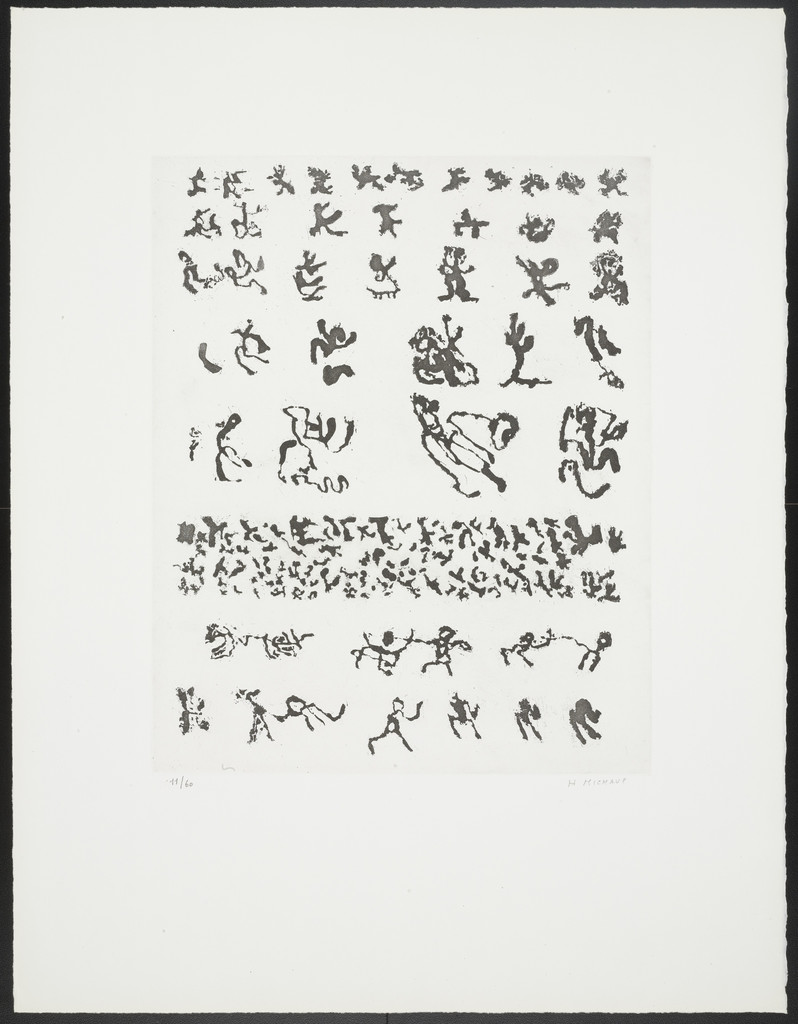 11/60
H. MICHAUX